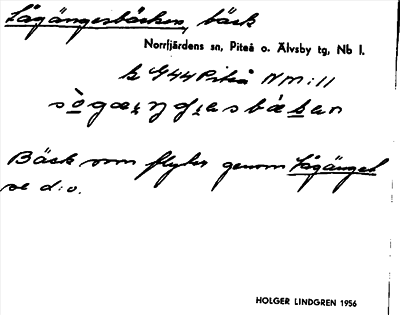 Sågängesbäcken, bäck
Norrfjärdens sn, Piteå o. Älvsby tg, Nb l.
k G44 Piteå NM:11
Bäck som flyter genom Sågänget
se d:o.
HOLGER LINDGREN 1956